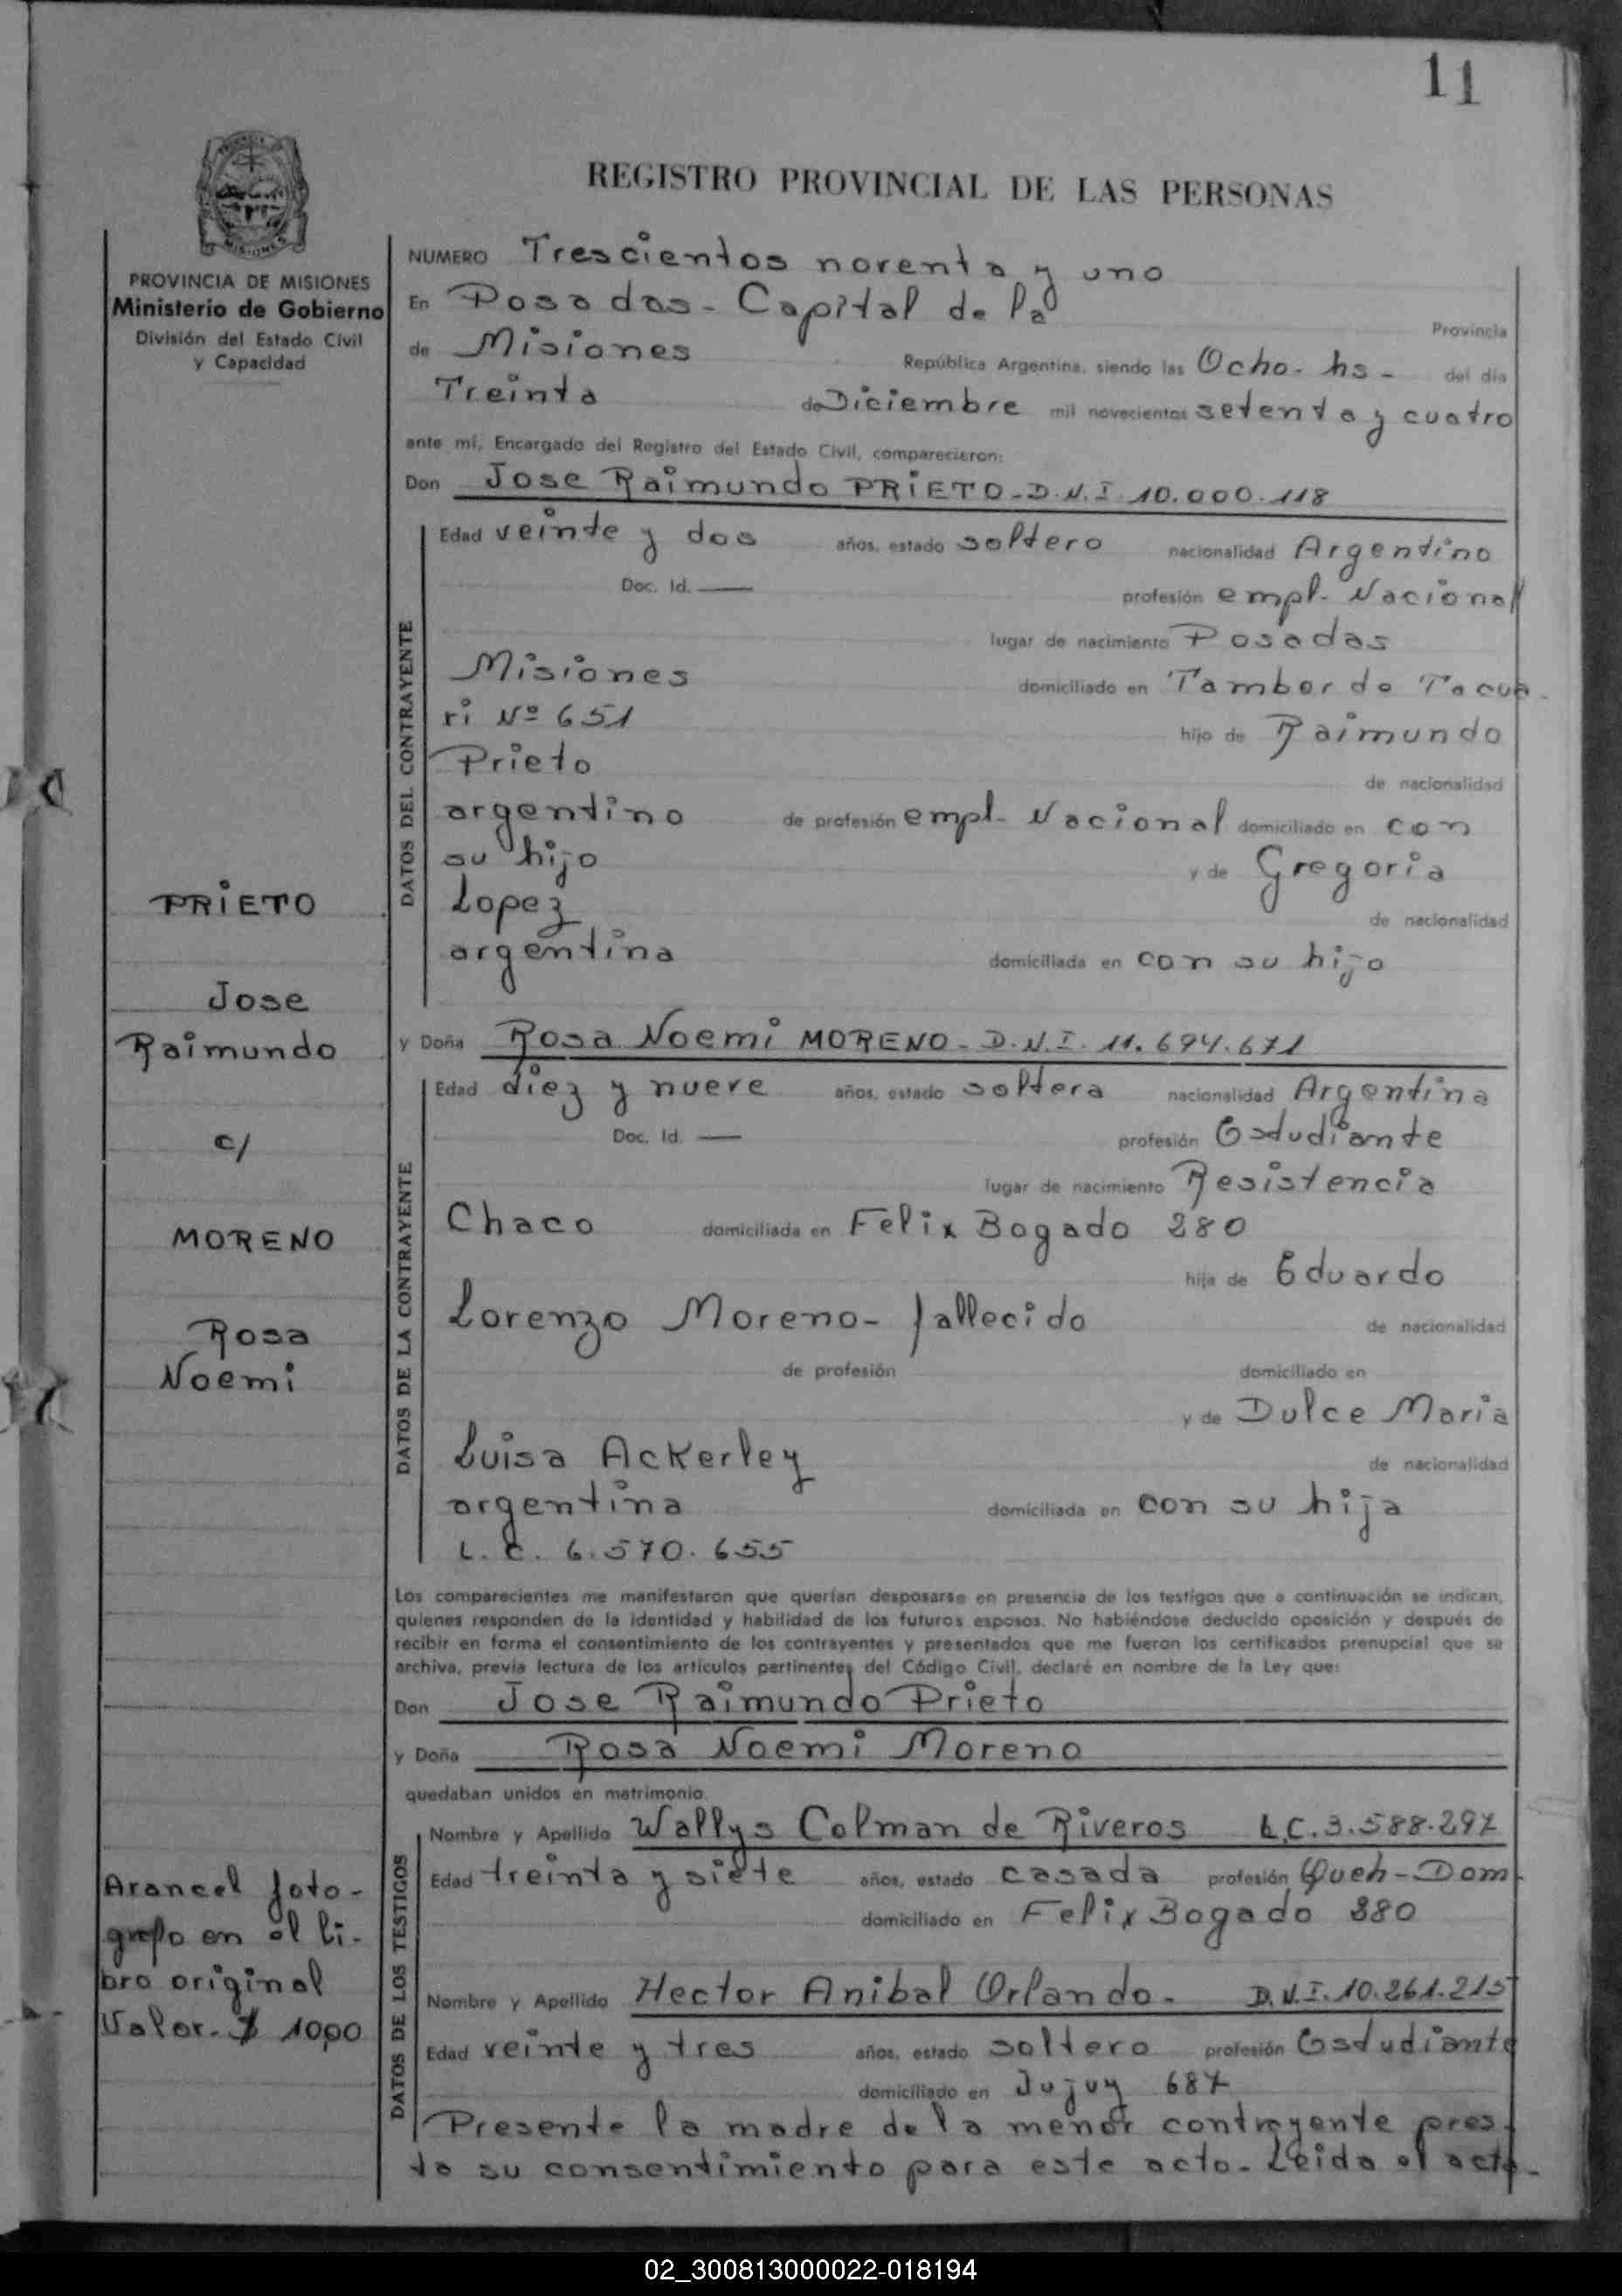 11
REGISTRO PROVINCIAL DE LAS PERSONAS
MISIONES
PROVINCIA DE MISIONES
Ministerio de Gobierno
División del Estado Civil
y Capacidad
NUMERO Trescientos noventa y uno
En Posadas - Capital de la Provincia
de Misiones República Argentina, siendo las Ocho - hs - del día
Treinta de Diciembre mil novecientos setenta y cuatro
ante mí, Encargado del Registro del Estado Civil, comparecieron:
Don Jose Raimundo PRIETO - D.N.I. 10.000.118
DATOS DEL CONTRAYENTE
Edad veinte y dos años, estado soltero nacionalidad Argentino
Doc. Id. — profesión empl. Nacional
lugar de nacimiento Posadas
Misiones domiciliado en Tambor de Tacua-
ri Nº 651 hijo de Raimundo
Prieto de nacionalidad
argentino de profesión empl. Nacional domiciliado en con
su hijo y de Gregoria
Lopez de nacionalidad
argentina domiciliada en con su hijo
PRIETO
Jose
Raimundo
c/
MORENO
Rosa
Noemi
y Doña Rosa Noemi MORENO - D.N.I. 11.694.671
DATOS DE LA CONTRAYENTE
Edad diez y nueve años, estado soltera nacionalidad Argentina
Doc. Id. — profesión Estudiante
lugar de nacimiento Resistencia
Chaco domiciliada en Felix Bogado 280
hija de Eduardo
Lorenzo Moreno - fallecido de nacionalidad
de profesión domiciliado en
y de Dulce Maria
Luisa Ackerley de nacionalidad
argentina domiciliada en con su hija
L.C. 6.570.655
Los comparecientes me manifestaron que querían desposarse en presencia de los testigos que a continuación se indican,
quienes responden de la identidad y habilidad de los futuros esposos. No habiéndose deducido oposición y después de
recibir en forma el consentimiento de los contrayentes y presentados que me fueron los certificados prenupcial que se
archiva, previa lectura de los artículos pertinentes del Código Civil, declaré en nombre de la Ley que:
Don Jose Raimundo Prieto
y Doña Rosa Noemi Moreno
quedaban unidos en matrimonio.
DATOS DE LOS TESTIGOS
Nombre y Apellido Wallys Colman de Riveros L.C. 3.588.297
Edad treinta y siete años, estado casada profesión Queh-Dom.
domiciliado en Felix Bogado 880
Nombre y Apellido Hector Anibal Orlando - D.N.I. 10.261.215
Edad veinte y tres años, estado soltero profesión Estudiante
domiciliado en Jujuy 687
Presente la madre de la menor contrayente pres-
ta su consentimiento para este acto - Leida el acta -
Arancel foto-
grafo en el li-
bro original
Valor - $ 10,00
02_300813000022-018194